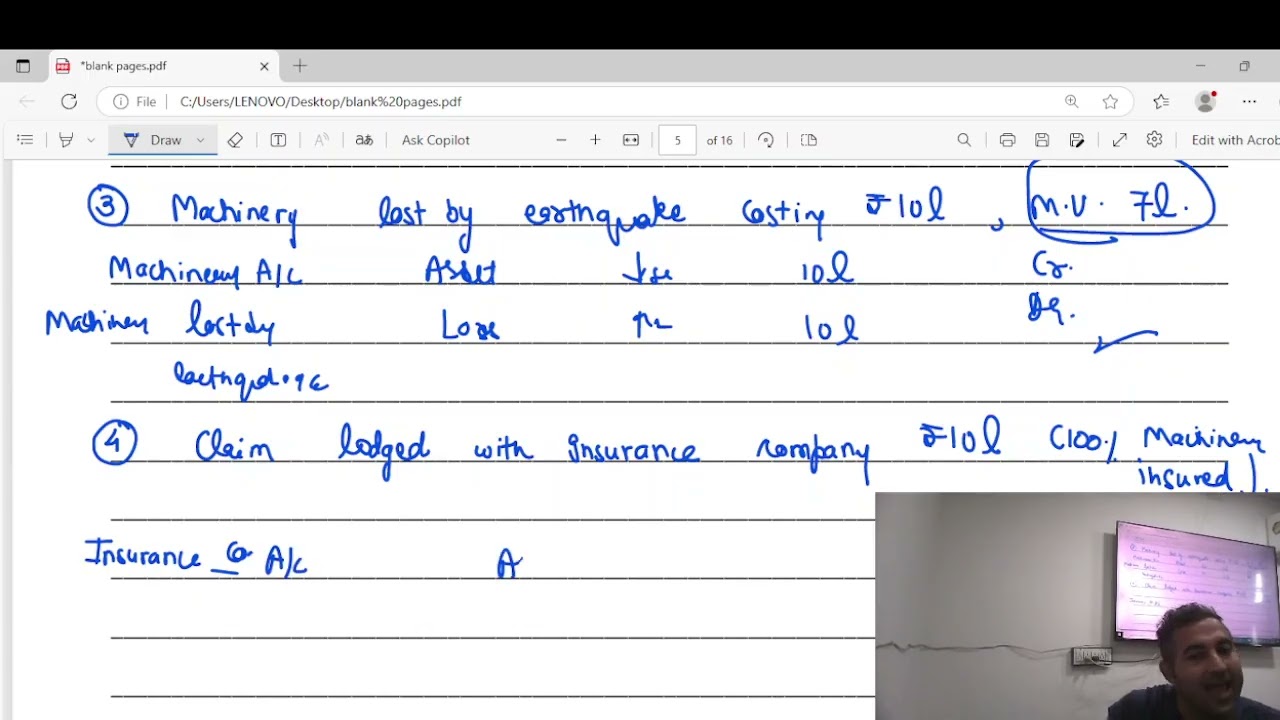 *blank pages.pdf
File C:/Users/LENOVO/Desktop/blank%20pages.pdf
Draw aあ Ask Copilot 5 of 16 Edit with Acrob
③ Machinery lost by earthquake costing ₹10l, M.V. 7l.
Machinery A/c Asset ↓se 10l Cr.
Machinery lost by Loss 10l Dr.
④ Claim lodged with insurance company ₹10l (100% Machinery
insured).
Insurance Co A/c A